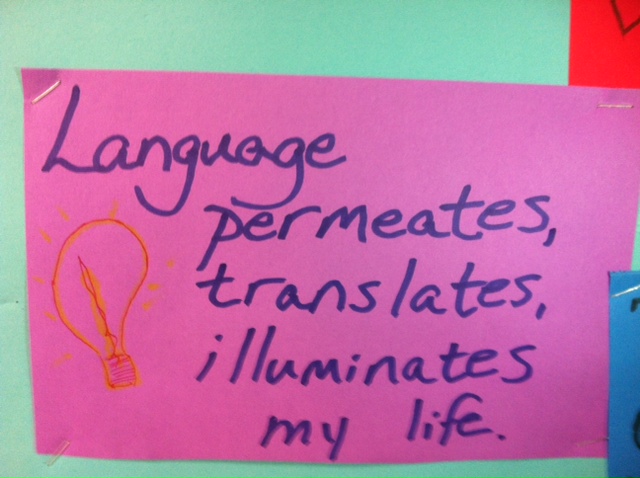 Language
permeates,
translates,
illuminates
my life.